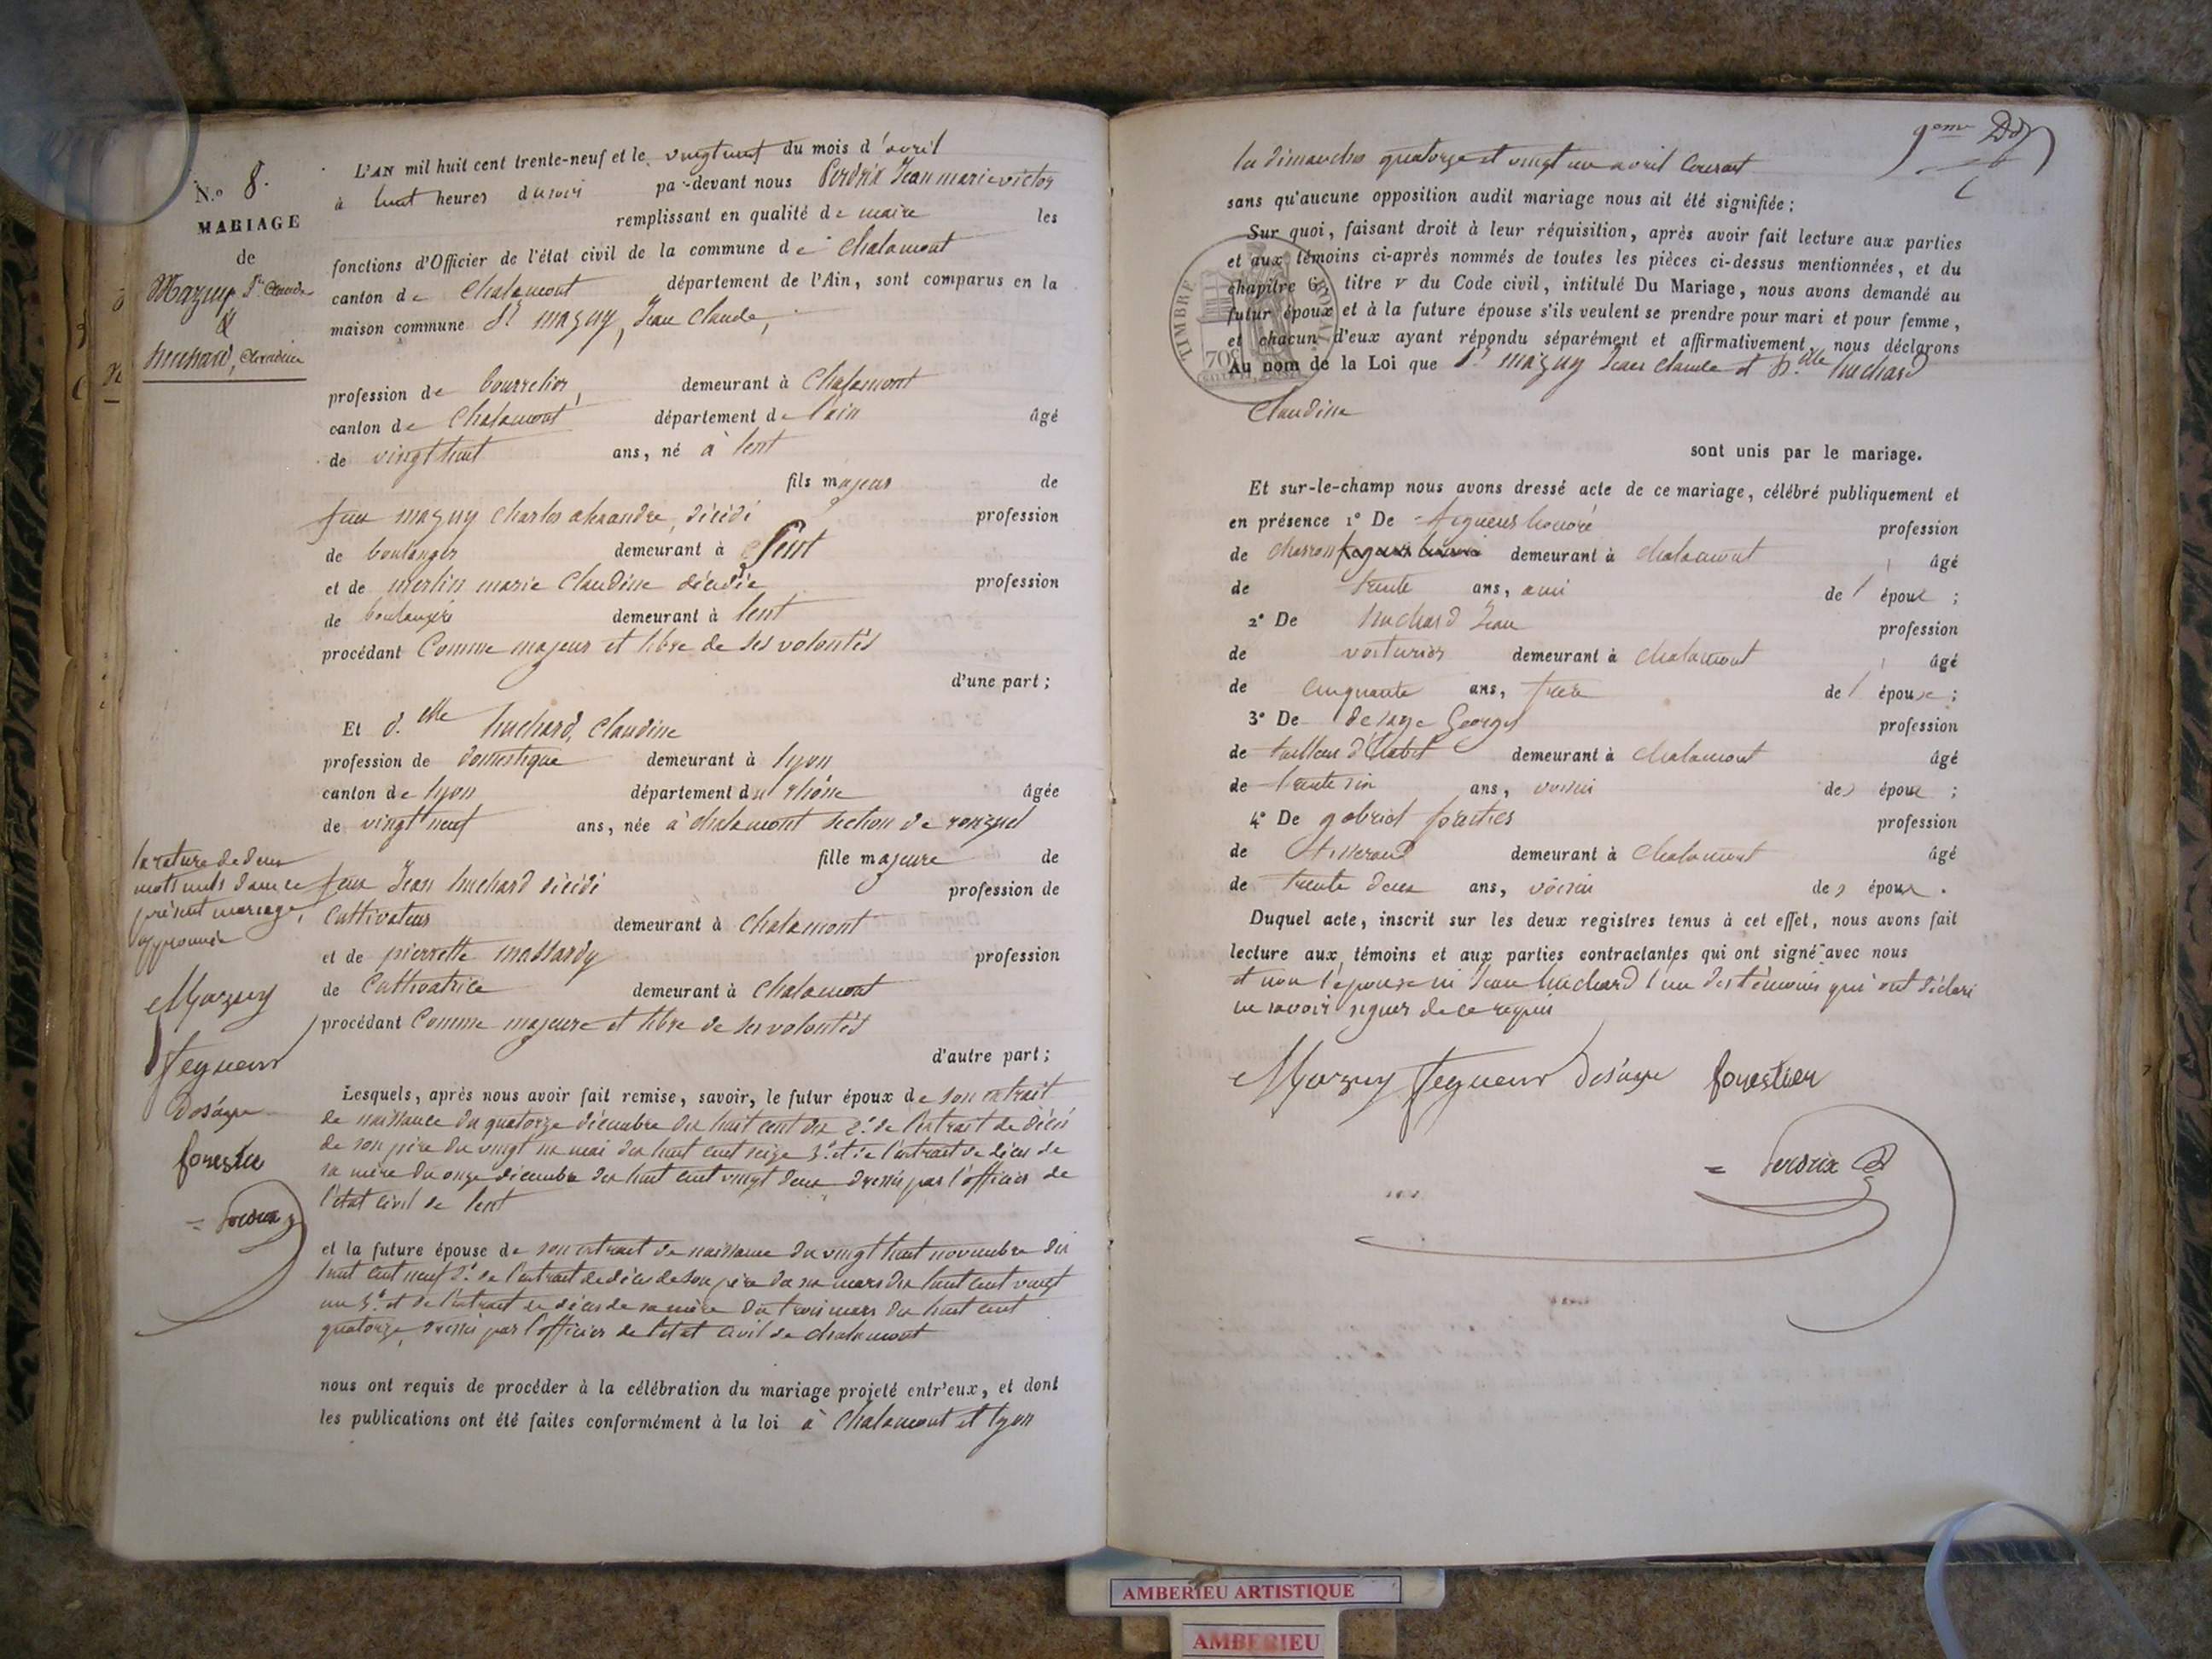 N.o 8.
MARIAGE
de
Mazuy, Jn Claude
&
huchard, Claudine
L'AN mil huit cent trente-neuf et le vingt neuf du mois d'avril
à huit heures du soir par-devant nous Perdrix Jean marie victor
remplissant en qualité de maire les
fonctions d'Officier de l'état civil de la commune de Chalamont
canton de Chalamont département de l'Ain, sont comparus en la
maison commune Sr mazuy, Jean Claude,
profession de bourrelier, demeurant à Chalamont
canton de Chalamont département de l'ain âgé
de vingt huit ans, né à lent
fils majeur de
feu mazuy Charles alexandre, décédé profession
de boulanger demeurant à Lent
et de merlin marie Claudine décédée profession
de boulangère demeurant à lent
procédant Comme majeur et libre de ses volontés
d'une part;
Et d.elle huchard, Claudine
profession de domestique demeurant à lyon
canton de lyon département du rhône âgée
de vingt neuf ans, née à chalamont section de ronzuel
fille majeure de
feu Jean huchard décédé profession de
Cultivateur demeurant à Chalamont
et de pierrette massardy profession
de Cultivatrice demeurant à Chalamont
procédant Comme majeure et libre de ses volontés
d'autre part;
la rature de deux
mots nuls dans le
présent mariage,
approuvée
Mazuy
fegueur
deságe
forestier
= Perdrix
Lesquels, après nous avoir fait remise, savoir, le futur époux de son extrait
de naissance du quatorze décembre dix huit cent dix 2.o de l'extrait de décès
de son père du vingt six mai dix huit cent seize 3.o et de l'extrait de décès de
sa mère du onze décembre dix huit cent vingt deux dressés par l'officier de
l'état civil de lent
et la future épouse de son extrait de naissance du vingt huit novembre dix
huit cent neuf 2.o de l'extrait de décès de son père du six mars dix huit cent vingt
un 3.o et de l'extrait de décès de sa mère du trois mars dix huit cent
quatorze, dressés par l'officier de l'état civil de chalamont
nous ont requis de procéder à la célébration du mariage projeté entr'eux, et dont
les publications ont été faites conformément à la loi à Chalamont et lyon
les dimanches quatorze et vingt un avril Courant
sans qu'aucune opposition audit mariage nous ait été signifiée;
Sur quoi, faisant droit à leur réquisition, après avoir fait lecture aux parties
et aux témoins ci-après nommés de toutes les pièces ci-dessus mentionnées, et du
chapitre 6, titre v du Code civil, intitulé Du Mariage, nous avons demandé au
futur époux et à la future épouse s'ils veulent se prendre pour mari et pour femme,
et chacun d'eux ayant répondu séparément et affirmativement, nous déclarons
Au nom de la Loi que Sr mazuy Jean Claude et D.elle huchard
Claudine
TIMBRE ROYAL
70c
sont unis par le mariage.
Et sur-le-champ nous avons dressé acte de ce mariage, célébré publiquement et
en présence 1o De fegueur honoré profession
de charron fegueur honoré demeurant à chalamont âgé
de trente ans, ami de l'époux ;
2o De huchard Jean profession
de voiturier demeurant à chalamont âgé
de cinquante ans, frère de l'épouse ;
3o De desage Georges profession
de tailleur d'habit demeurant à chalamont âgé
de trente six ans, voisin des époux ;
4o De gabriel forestier profession
de tisserand demeurant à Chalamont âgé
de trente deux ans, voisin des époux .
Duquel acte, inscrit sur les deux registres tenus à cet effet, nous avons fait
lecture aux témoins et aux parties contractantes qui ont signé avec nous
et non l'épouse ni Jean huchard l'un des témoins qui ont déclaré
ne savoir signer de ce requis
Mazuy fegueur deságe forestier
= Perdrix
AMBERIEU ARTISTIQUE
AMBERIEU